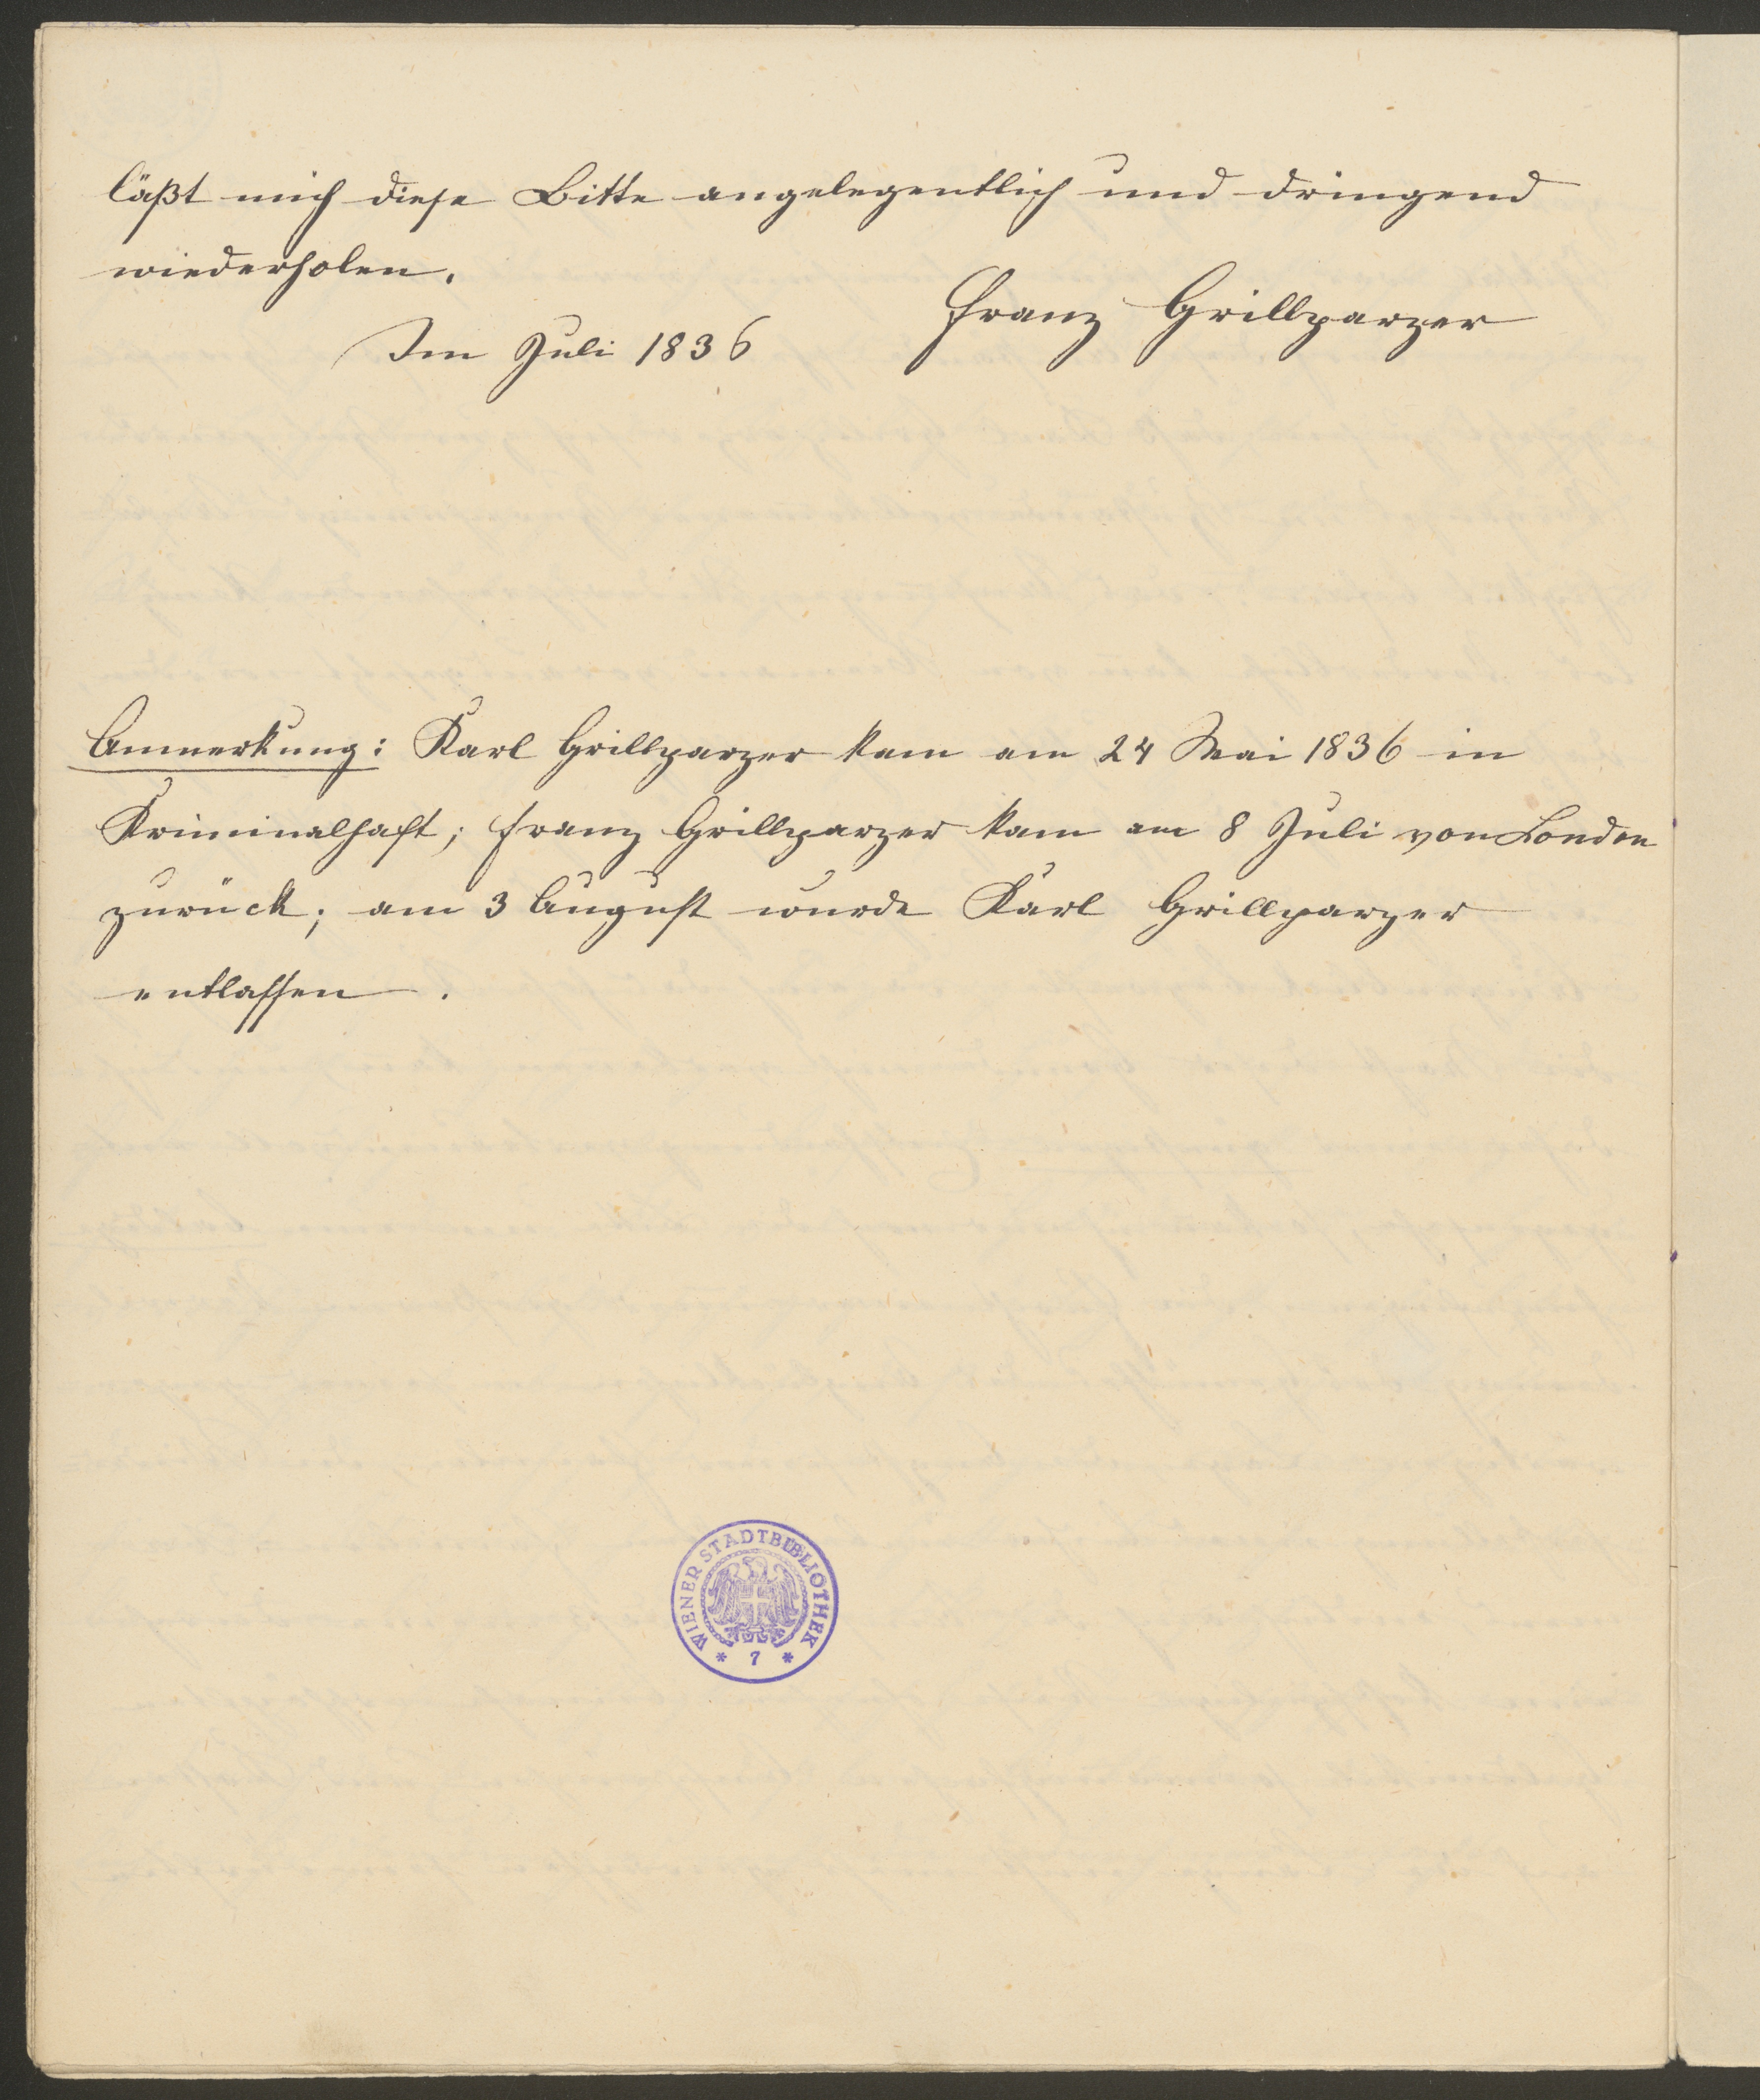 läßt mich diese Bitte angelegentlich und dringend
wiederholen.
Franz Grillparzer
Im Juli 1836
Anmerkung: Karl Grillparzer kam am 24 Mai 1836 in
Kriminalhaft; Franz Grillparzer kam am 8 Juli von London
zurück; am 3 August wurde Karl Grillparzer
entlassen.
WIENER STADTBIBLIOTHEK
* 7 *